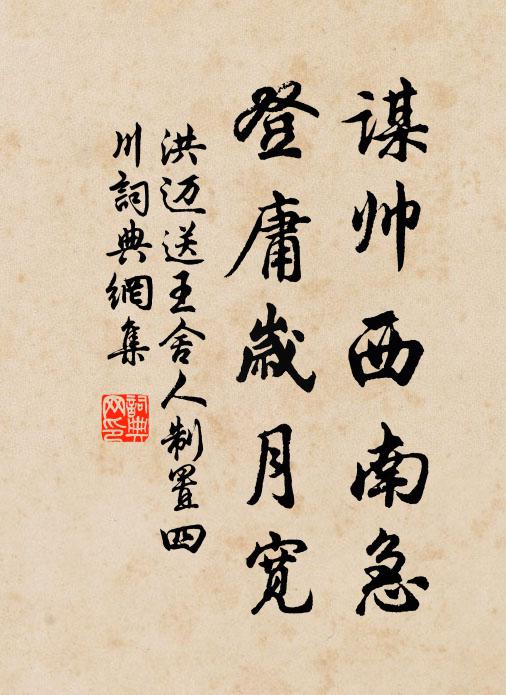 谋帅西南急
登庸歲月宽
洪迈送王舍人制置四
川詞典網集
詞典网印